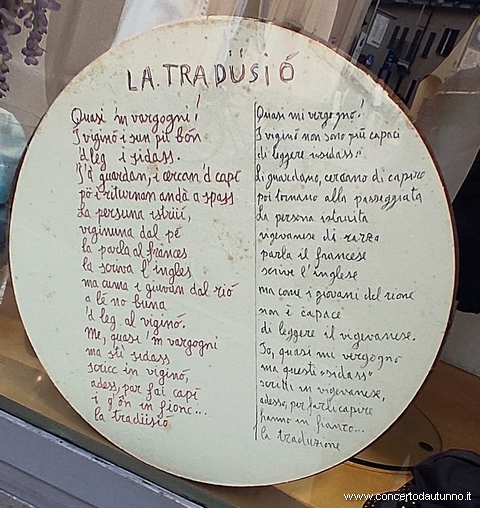 LA TRADÜSIÓ
Quasi 'm vargogni!
I viginó i sun pü bón
'd leg i sidass.
I a guardan, i cercan 'd capì
pö i riturnan andà a spass
La persuna istrüi,
viginuna dal pé
la parla al frances
la scriva l'ingles
ma cuma i giuvan dal rió
a lé no buna
'd leg al viginó.
Me, quasi 'm vargogni
ma sti sidass
scricc in viginó,
adess, par fai capì
i g'ón in fionc...
la tradüsió
Quasi mi vergogno!
I viginó non sono più capaci
di leggere i "sidass"
Li guardano, cercano di capire
poi tornano alla passeggiata
La persona istruita
vigevanese di razza
parla il francese
scrive l'inglese
ma come i giovani del rione
non è capace
di leggere il vigevanese.
Io, quasi mi vergogno
ma questi "sidass"
scritti in vigevanese,
adesso, per farli capire
hanno in fianco...
la traduzione
www.concertodautunno.it